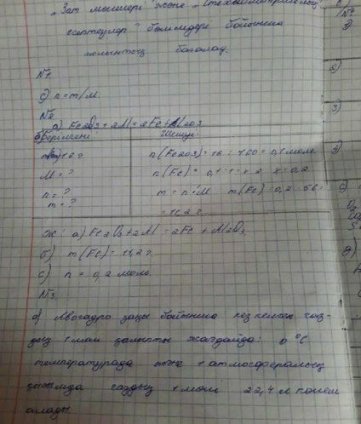 "Зат мөлшері" және "Стехиометриялық
есептеулер" бөлімдері бойынша
жиынтық бағалау.
№1
с) n = m/M.
№2
а) Fe2O3 + 2Al = 2Fe + Al2O3
б) Берілгені: Шешуі:
n(Fe2O3) = 16 : 160 = 0,1 моль
M = ? n(Fe) = 0,1 · 2 = 0,2
n = ? m = n · M m(Fe) = 0,2 · 56 =
m = ? = 11,2 г.
Ж: а) Fe2O3 + 2Al = 2Fe + Al2O3
б) m(Fe) = 11,2 г.
с) n = 0,2 моль.
№3
а) Авогадро заңы бойынша кез келген газ-
дың 1 молі қалыпты жағдайда: 0 °С
температурада және 1 атмосфералық
қысымда газдың 1 молі 22,4 л көлем
алады